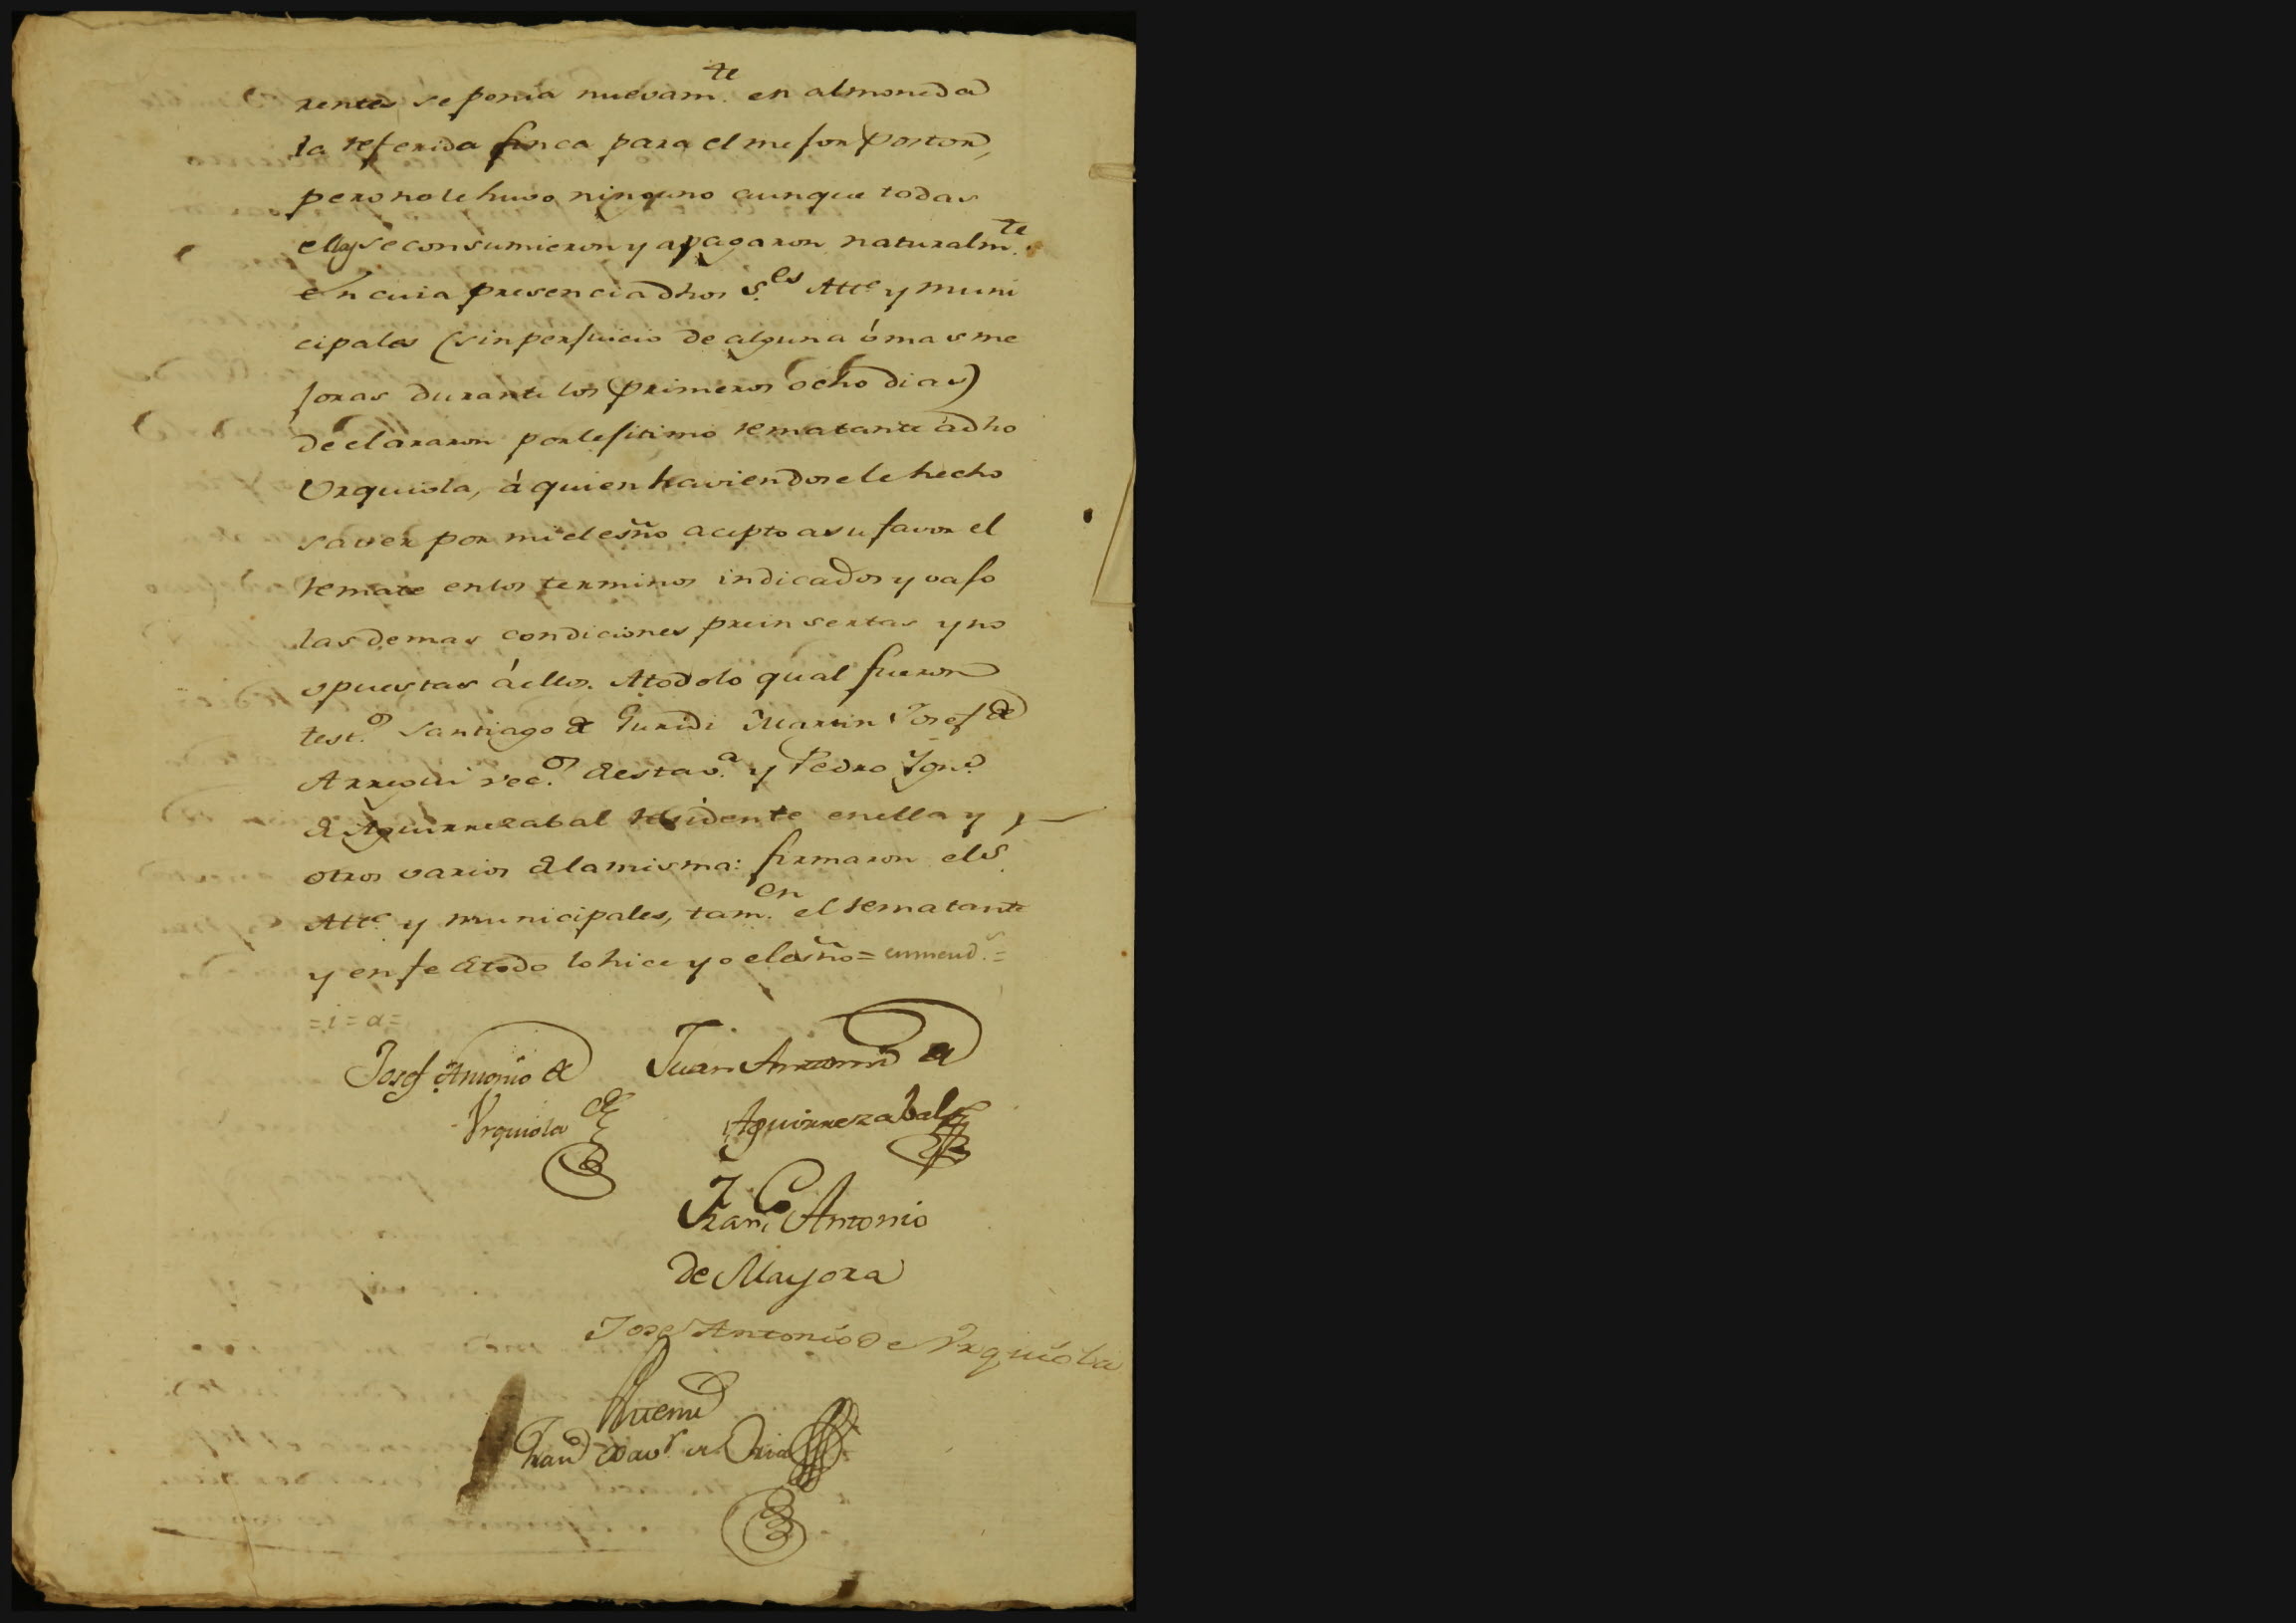 rentes se ponia nuevam.te en almoneda
la referida finca para el mejor Postor,
pero no le huvo ninguno aunque todas
ellas se consumieron y apagaron naturalm.te
en cuia presencia dhos S.es Alc.e y muni
cipales (sin perjuicio de alguna ó mas me
joras durante los primeros ocho dias)
declararon por lejitimo rematante á dho
Urquiola, á quien haviendosele hecho
saver por mi el esño acepto a su favor el
remate en los terminos indicados y vajo
las demas condiciones preinsertas y no
opuestas á ellos. A todo lo qual fueron
test.os Santiago de Guridi Martin Josef de
Arregui vec.os de esta v.a y Pedro Ign.o
de Aguirrezabal residente en ella y
otros varios de la misma: firmaron el S.
Alc.e y municipales, tam.en el rematante
y en fe de todo lo hice yo el esño = enmend.s =
= i = a =
Josef Antonio de Juan Antonio de
Urquiola Aguirrezabal
Fran.co Antonio
de Mayora
Josef Antonio de Urquiola
Ante mi
Fran.co Xav.r de Oria